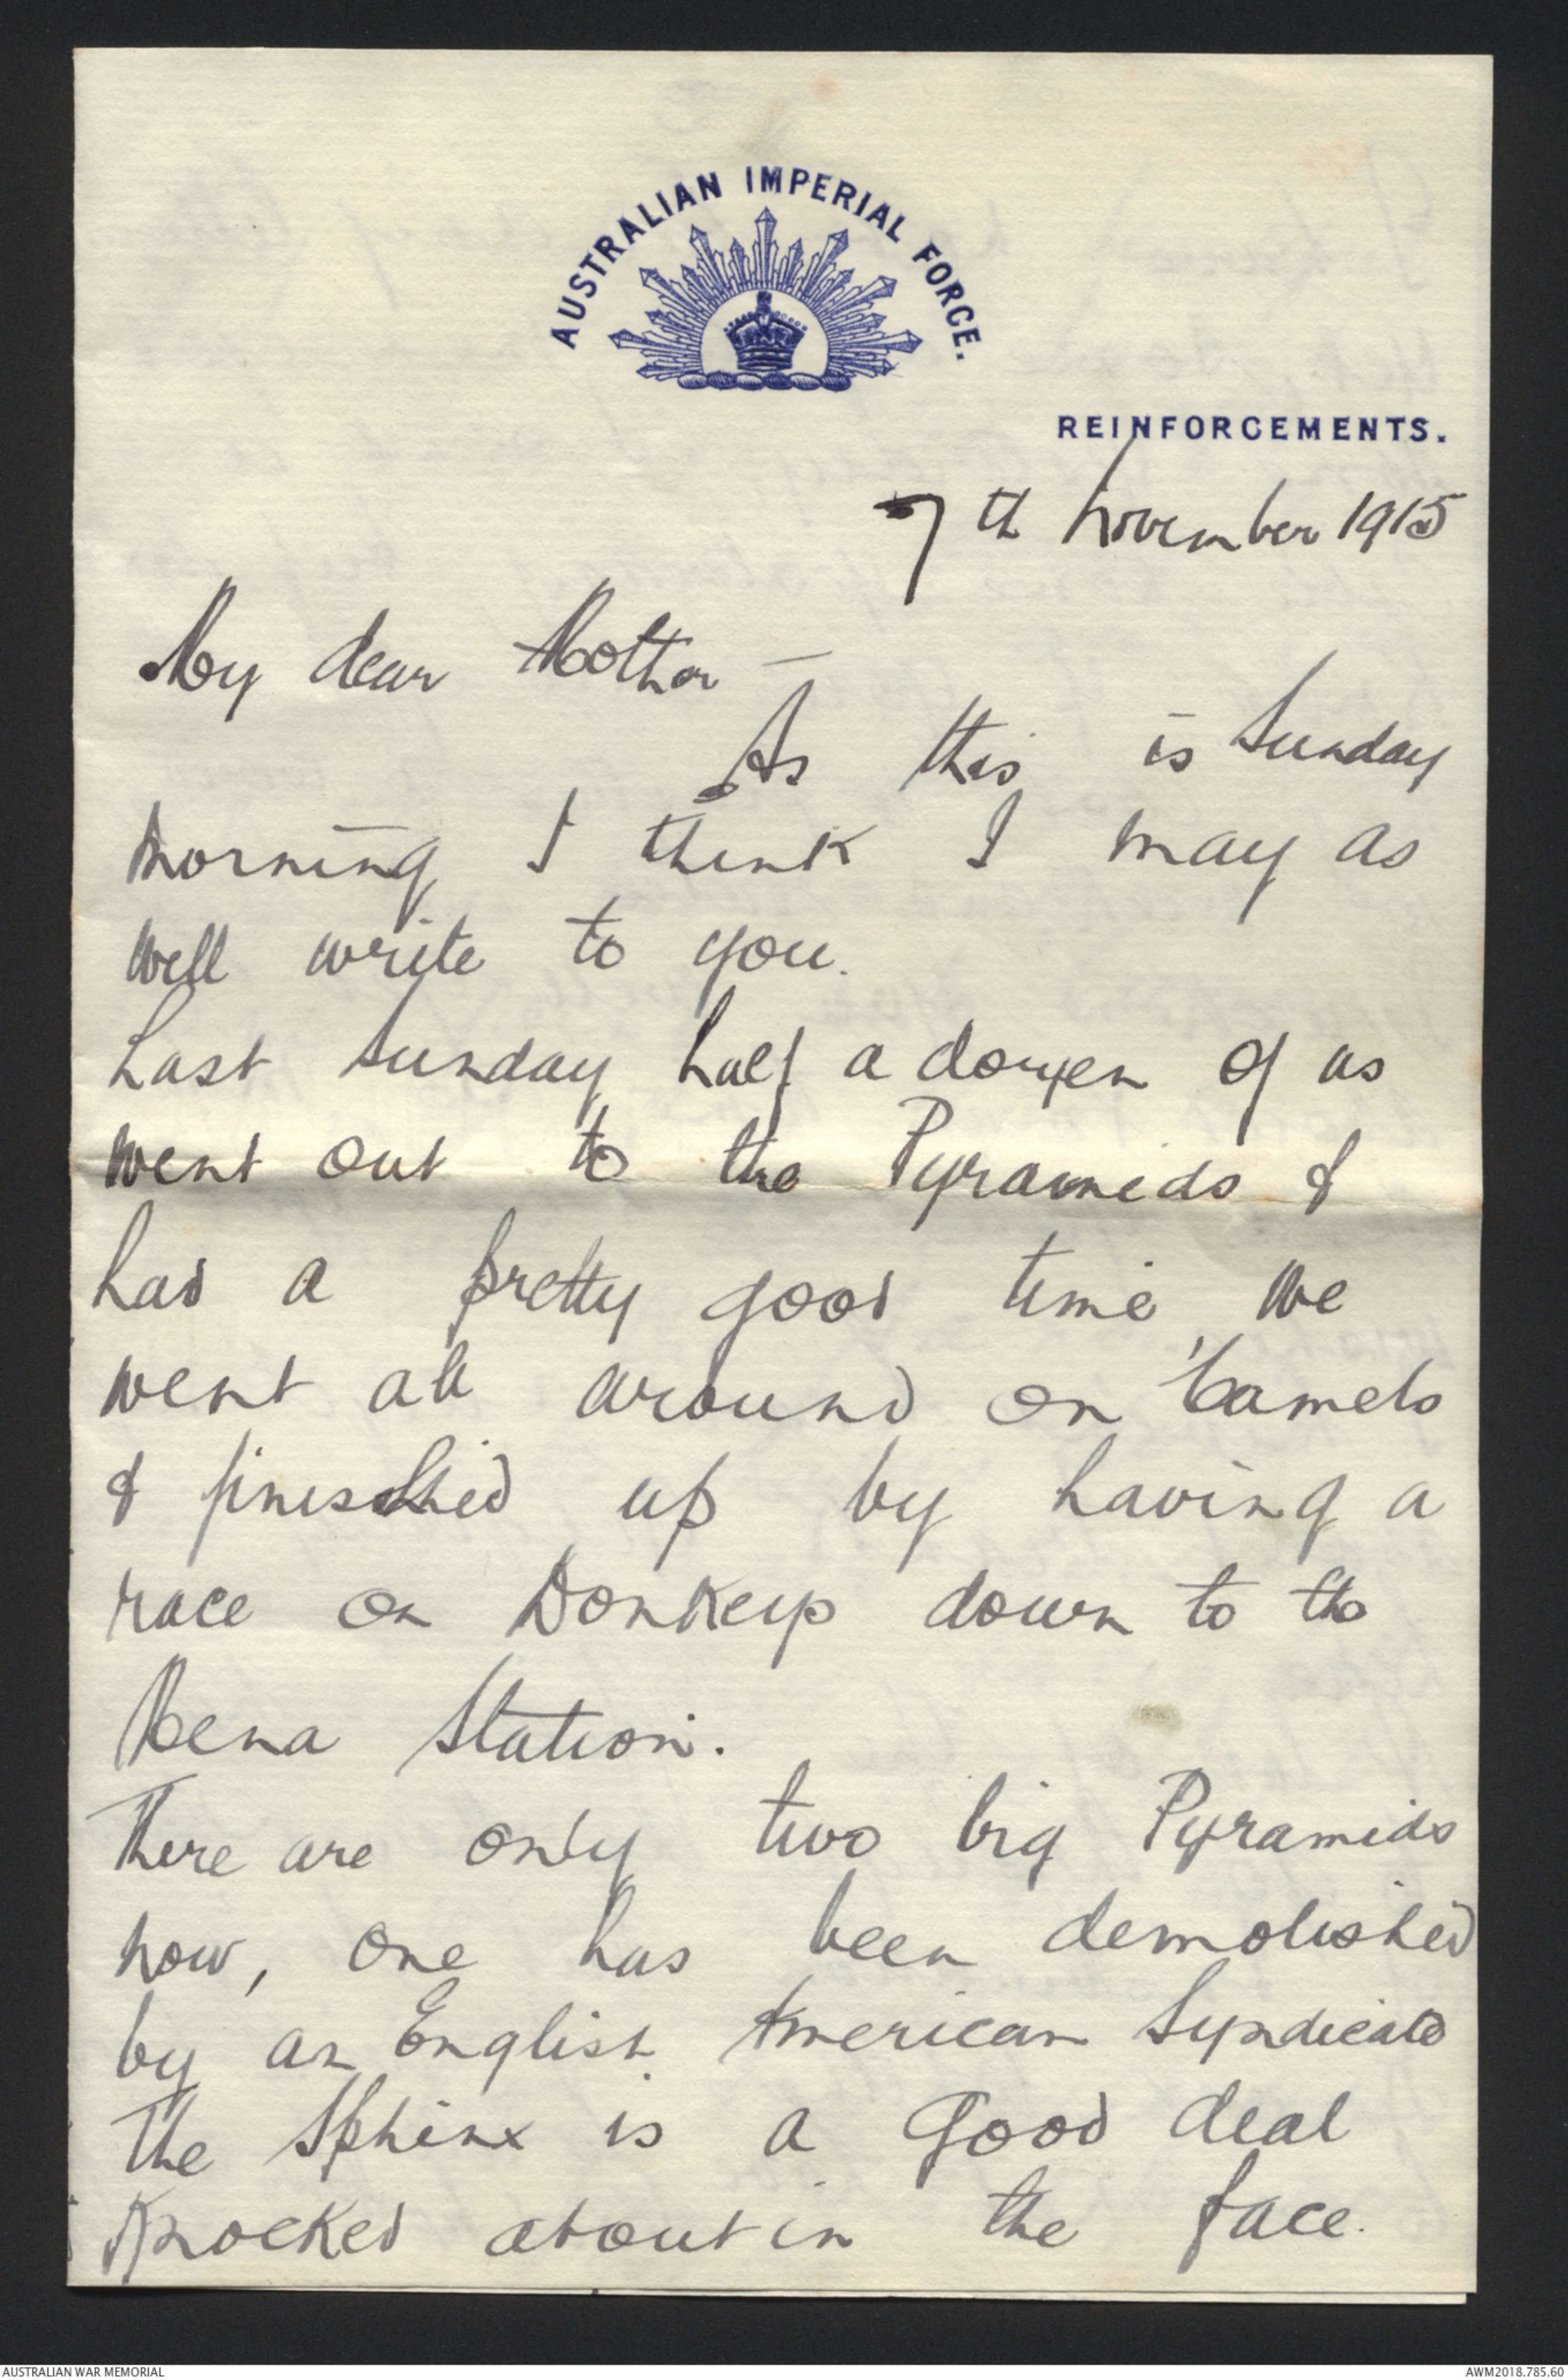 AUSTRALIAN IMPERIAL FORCE.
REINFORCEMENTS.
7th November 1915
My dear Mother —
As this is Sunday
morning I think I may as
well write to you.
Last Sunday half a dozen of us
went out to the Pyramids &
had a pretty good time we
went all around on Camels
& finished up by having a
race on Donkeys down to the
Mena Station.
There are only two big Pyramids
now, one has been demolished
by an English American Syndicate
The Sphinx is a good deal
knocked about in the face.
AUSTRALIAN WAR MEMORIAL
AWM2018.785.60